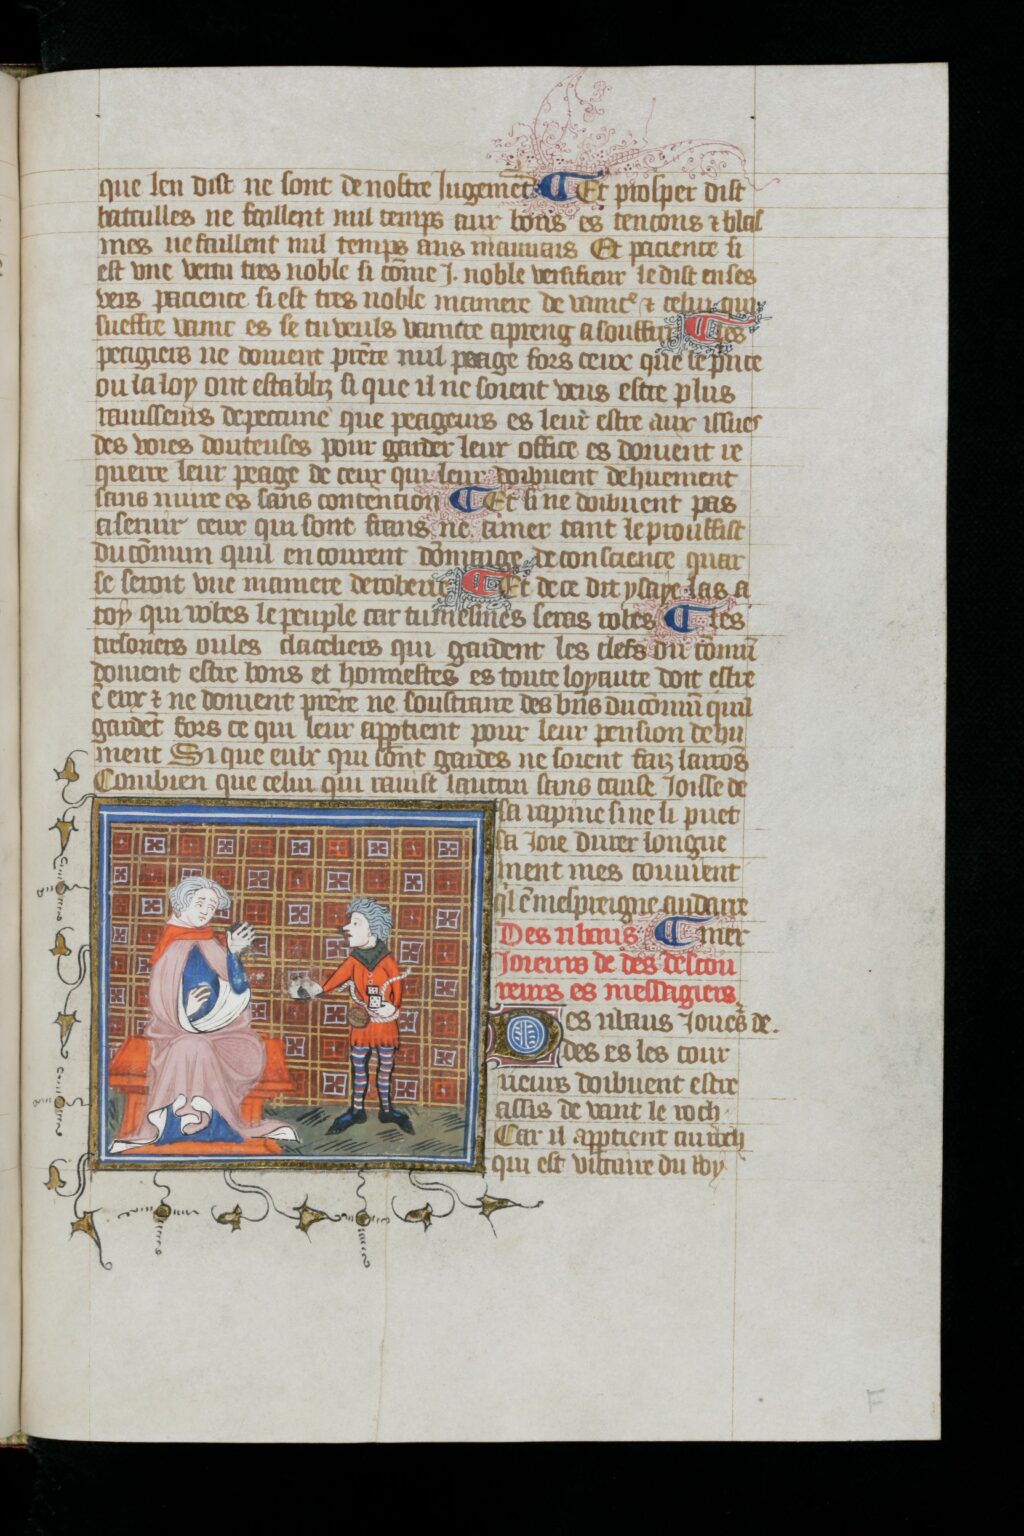 que len dist ne sont de nostre Jugemēt Et prosper dist
batailles ne faillent nul temps aux bons es tencons ⁊ blas
mes ne faillent nul temps aus mauuais Et pacience si
est vne vertu tres noble si cōme J. noble versifieur le dist en ses
vers pacience si est tres noble maniere de vaincᵉ ⁊ celui qui
sueffre vaint es se tu veuls vaincre apreng a souffrir Les
peagiers ne doiuent prēre nul peage fors ceux que le prīce
ou la loy ont establiz si que il ne soient veus estre plus
rauisseurs de peccune que peageurs es leur estre aux issues
des voies douteuses pour garder leur office es doiuent re
querre leur peage de ceux qui leur doibuent dehuement
sans nuire es sans contention Et si ne doibuent pas
asseruir ceux qui sont frans ne amer tant le prouffist
du cōmun quil en courent dōmaige de conscience quar
se seroit vne maniere de roberie Et de ce dit ysaye las a
toy qui robes le peuple car tu mesmes seras robes Les
tresoriers ou les claceliers qui gardent les clefs du cōmū
doiuent estre bons et honnestes es toute loyaute doit estre
ē eux ⁊ ne doiuent prēre ne soustraire des biēs du cōmū quil
gardēt fors ce qui leur apptient pour leur pension dehu
ment Si que eulx qui sont gardes ne soient faiz larrōs
Combien que celui qui rauist lautrui sans cause Joisse de
sa rapine si ne li puet
sa Joie durer longue
ment mes couuient
qͥl ē mespreigne au darre
Des ribaus Cmer
Joueurs de des des cou
reurs es messagiers
Des ribaus Joueᵉs de
des es les cour
reurs doibuent estre
assis de vant le roch
Car il apptient au roch
qui est victaire du Roy
F